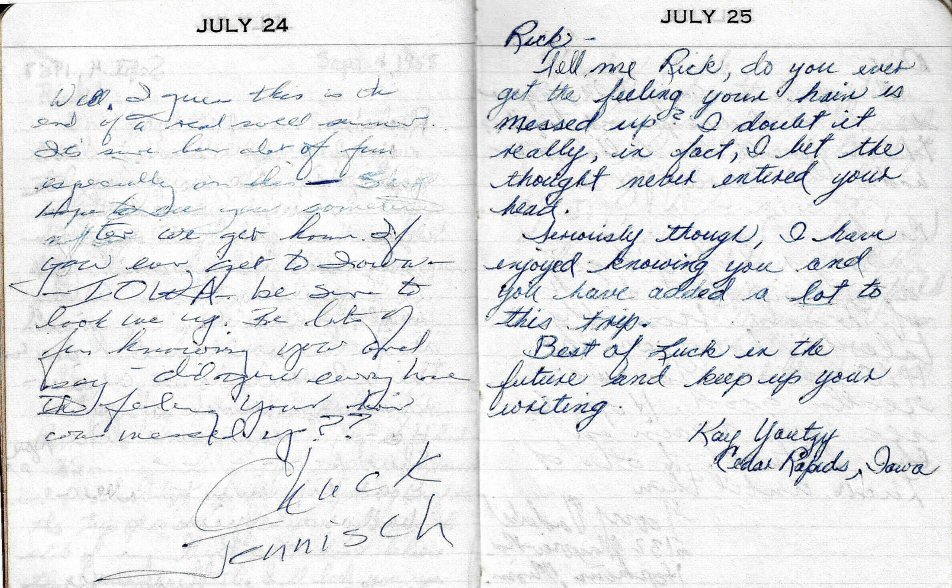 JULY 24
Well, I guess this is the
end of a real swell summer.
It's sure been alot of fun
especially on this — 
Hope to see you sometime
after we get home. If
you ever get to Iowa —
— IOWA be sure to
look me up. Be lots of
fun knowing you and
say — did you every have
the feeling your hair
was messed up??
Chuck
Jennisch
JULY 25
Rick —
Tell me Rick, do you ever
get the feeling your hair is
messed up? I doubt it
really, in fact, I bet the
thought never entired your
head.
Seriously though, I have
enjoyed knowing you and
you have added a lot to
this trip.
Best of Luck in the
future and keep up your
writing
Kay Youtzy
Cedar Rapids, Iowa